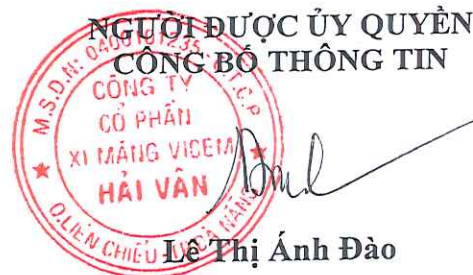 NGƯỜI ĐƯỢC ỦY QUYỀN
CÔNG BỐ THÔNG TIN
M.S.D.N: 0400101235 C.T.C.P
CÔNG TY
CỔ PHẦN
XI MĂNG VICEM
HẢI VÂN
Q.LIÊN CHIỂU ĐÀ NẴNG
Lê Thị Ánh Đào